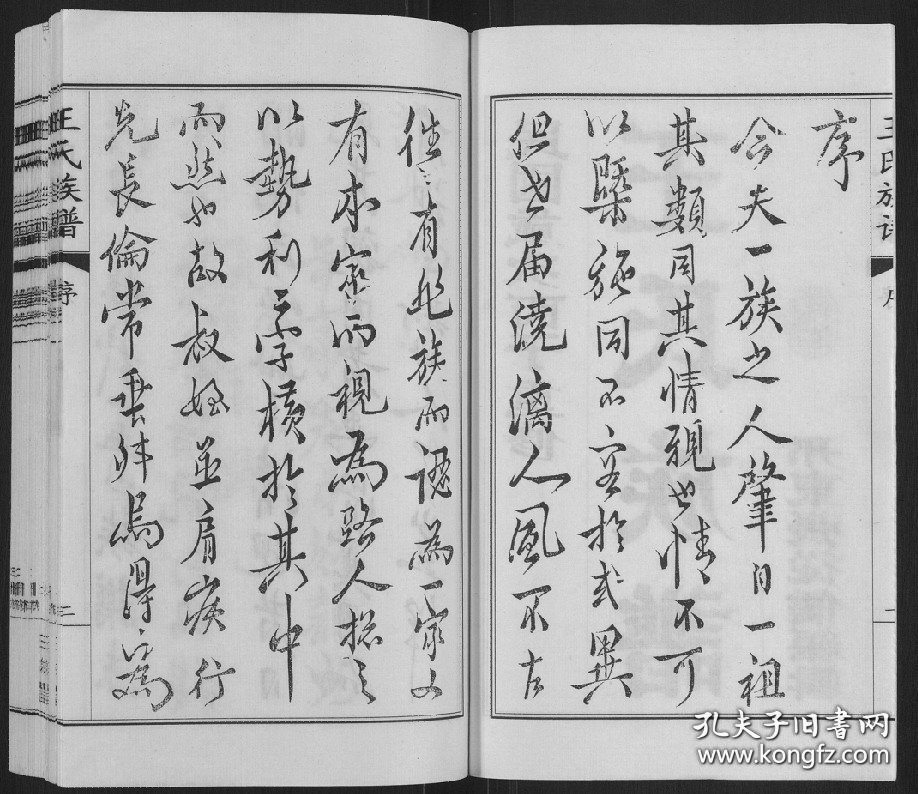 王氏族
序
今夫一族之人肇自一祖
其類同其情親也情不可
以槩施同不容於或異
但世届澆漓人風不古
往〻有非族而認為一家又
有本宗而視為路人捴之
以勢利二字橫於其中
而然也故叔姪並肩疾行
先長倫常乖舛焉得為
王氏族譜 序 二
孔夫子旧书网
www.kongfz.com